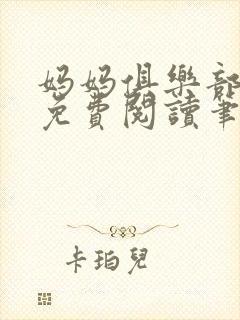 媽媽俱樂部
免費閱讀筆
卡珀兒